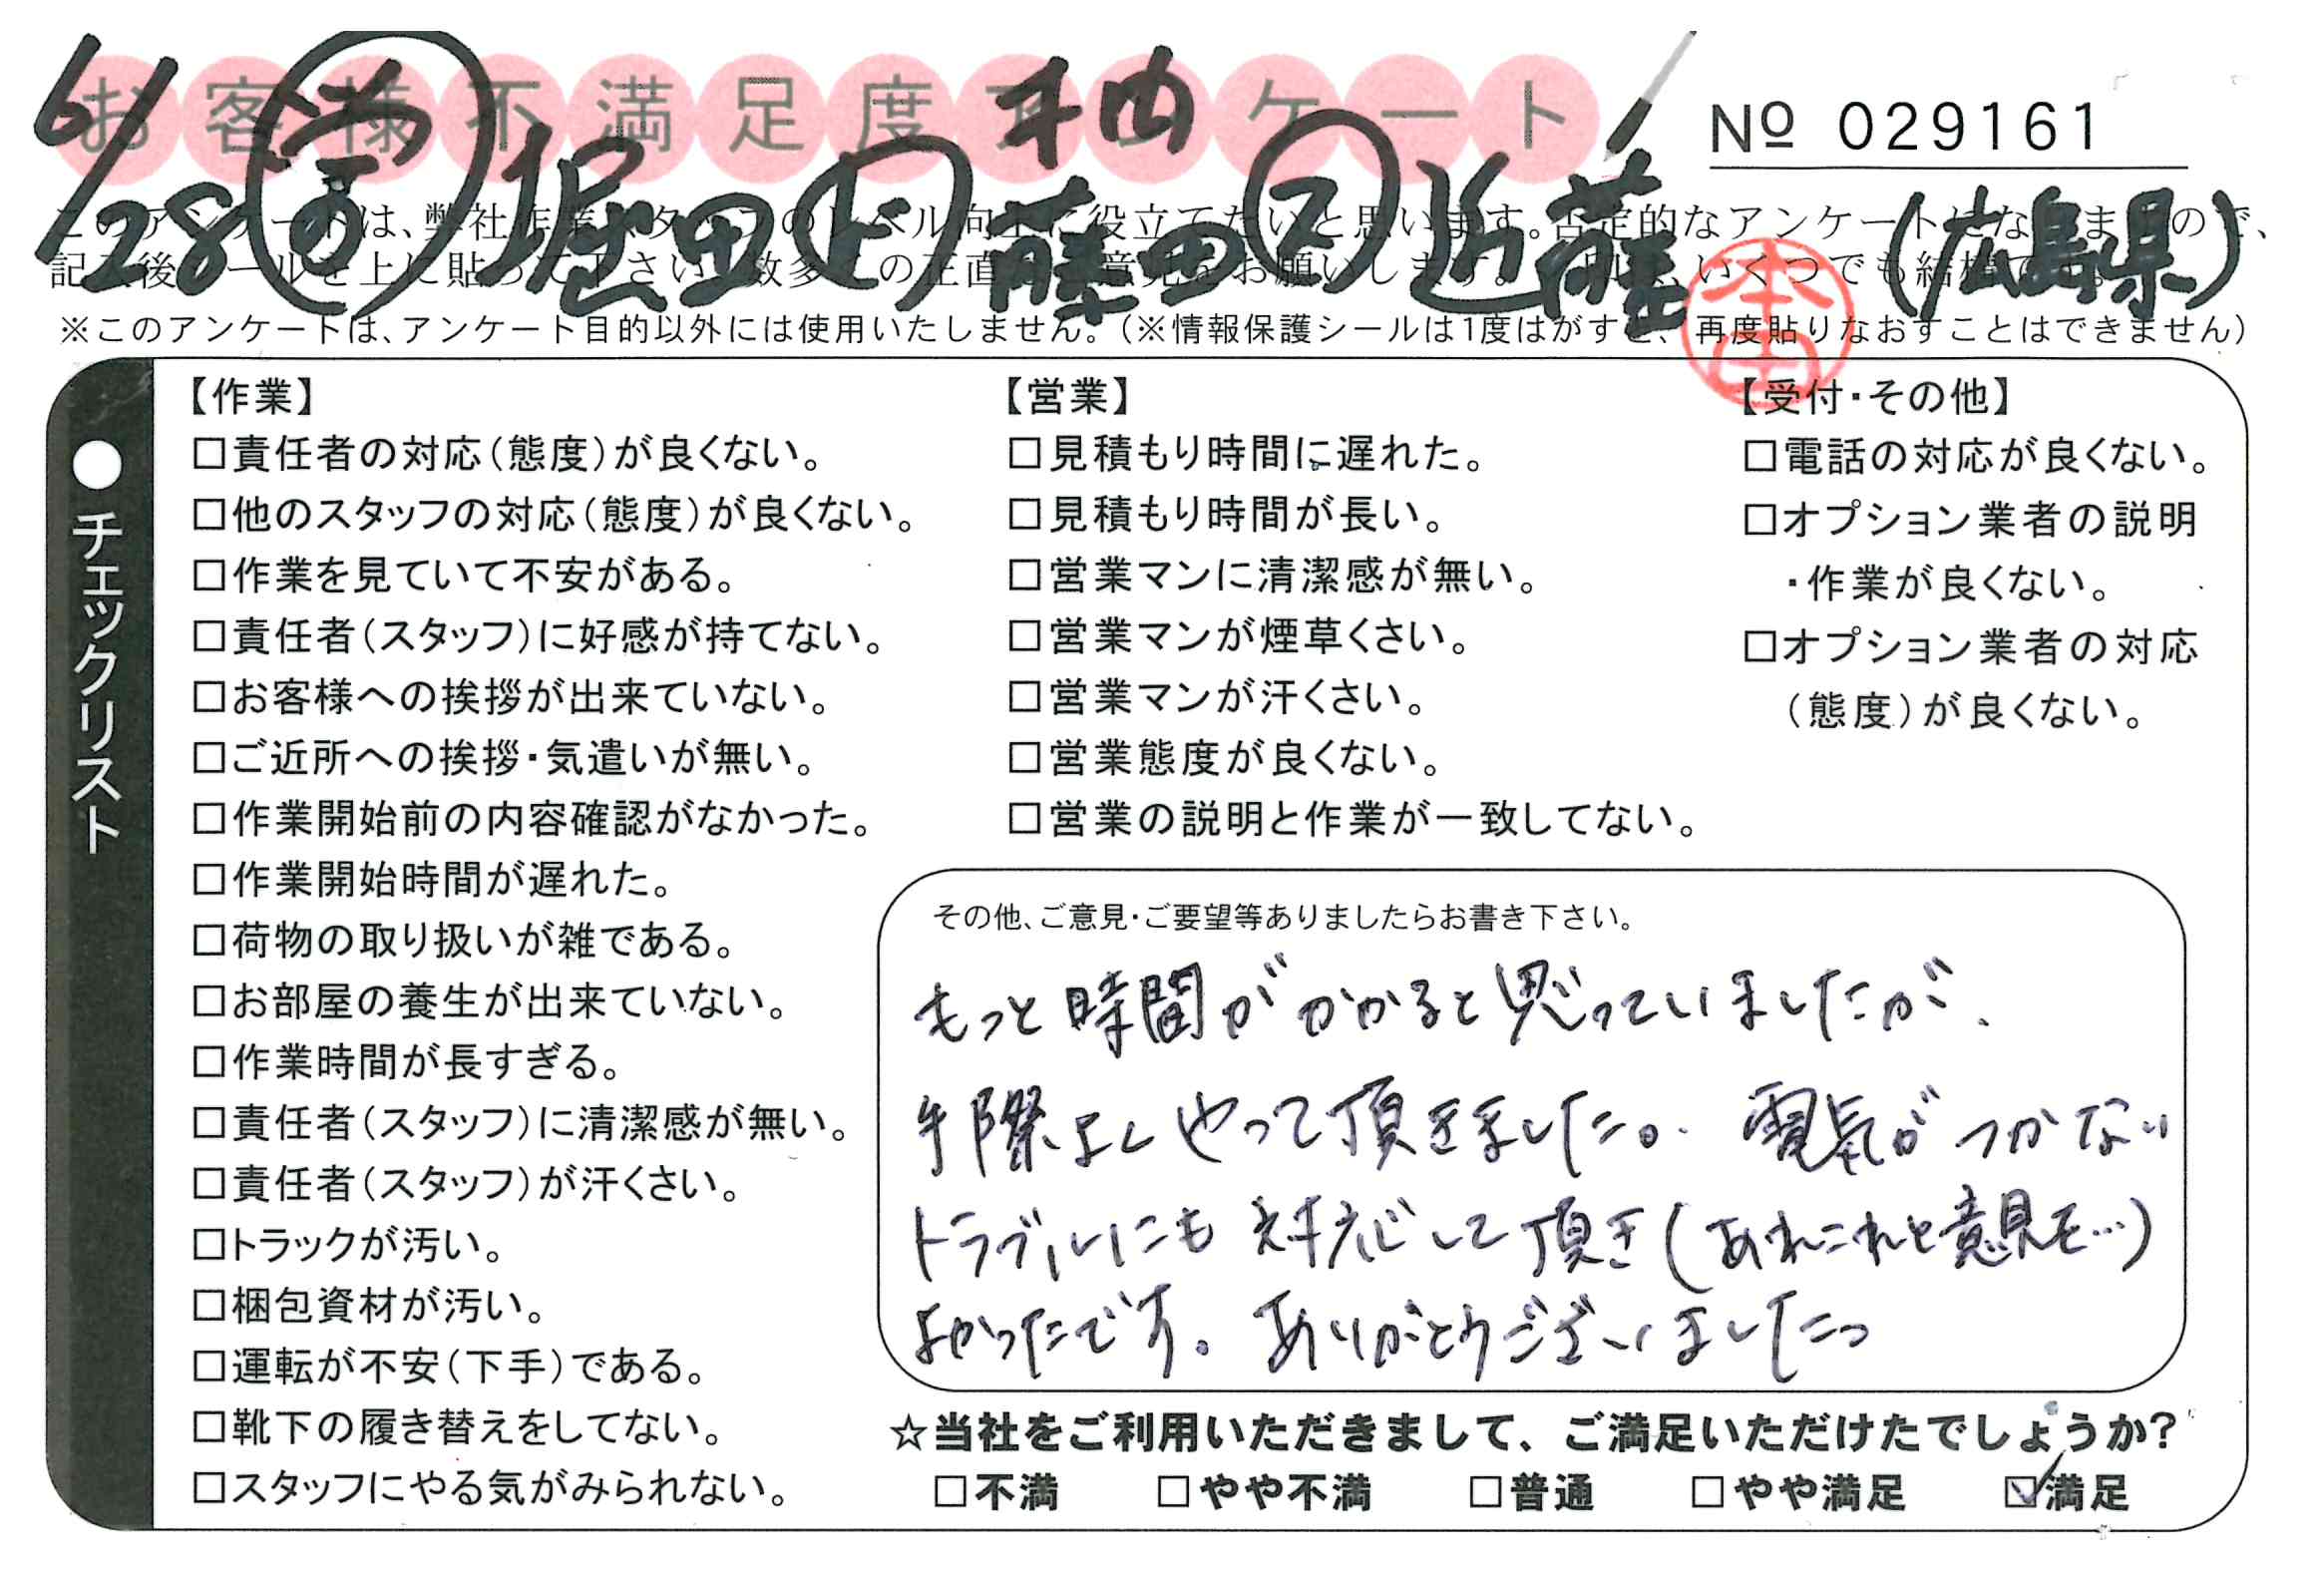 お客様不満足度アンケート
№ 029161
6/28 堀田 藤田 ス 近藤 (広島県)
このアンケートは、弊社作業スタッフのレベル向上に役立てたいと思います。否定的なアンケートになりますので、
※このアンケートは、アンケート目的以外には使用いたしません。(※情報保護シールは1度はがすと、再度貼りなおすことはできません)
●チェックリスト
【作業】
□責任者の対応(態度)が良くない。
□他のスタッフの対応(態度)が良くない。
□作業を見ていて不安がある。
□責任者(スタッフ)に好感が持てない。
□お客様への挨拶が出来ていない。
□ご近所への挨拶・気遣いが無い。
□作業開始前の内容確認がなかった。
□作業開始時間が遅れた。
□荷物の取り扱いが雑である。
□お部屋の養生が出来ていない。
□作業時間が長すぎる。
□責任者(スタッフ)に清潔感が無い。
□責任者(スタッフ)が汗くさい。
□トラックが汚い。
□梱包資材が汚い。
□運転が不安(下手)である。
□靴下の履き替えをしてない。
□スタッフにやる気がみられない。
【営業】
□見積もり時間に遅れた。
□見積もり時間が長い。
□営業マンに清潔感が無い。
□営業マンが煙草くさい。
□営業マンが汗くさい。
□営業態度が良くない。
□営業の説明と作業が一致してない。
【受付・その他】
□電話の対応が良くない。
□オプション業者の説明
・作業が良くない。
□オプション業者の対応
(態度)が良くない。
その他、ご意見・ご要望等ありましたらお書き下さい。
もっと時間がかかると思っていましたが、
手際よくやって頂きました。電気がつかない
トラブルにも対応して頂き(あれこれと意見を…)
よかったです。ありがとうございました。
☆当社をご利用いただきまして、ご満足いただけたでしょうか?
□不満 □やや不満 □普通 □やや満足 ☑満足